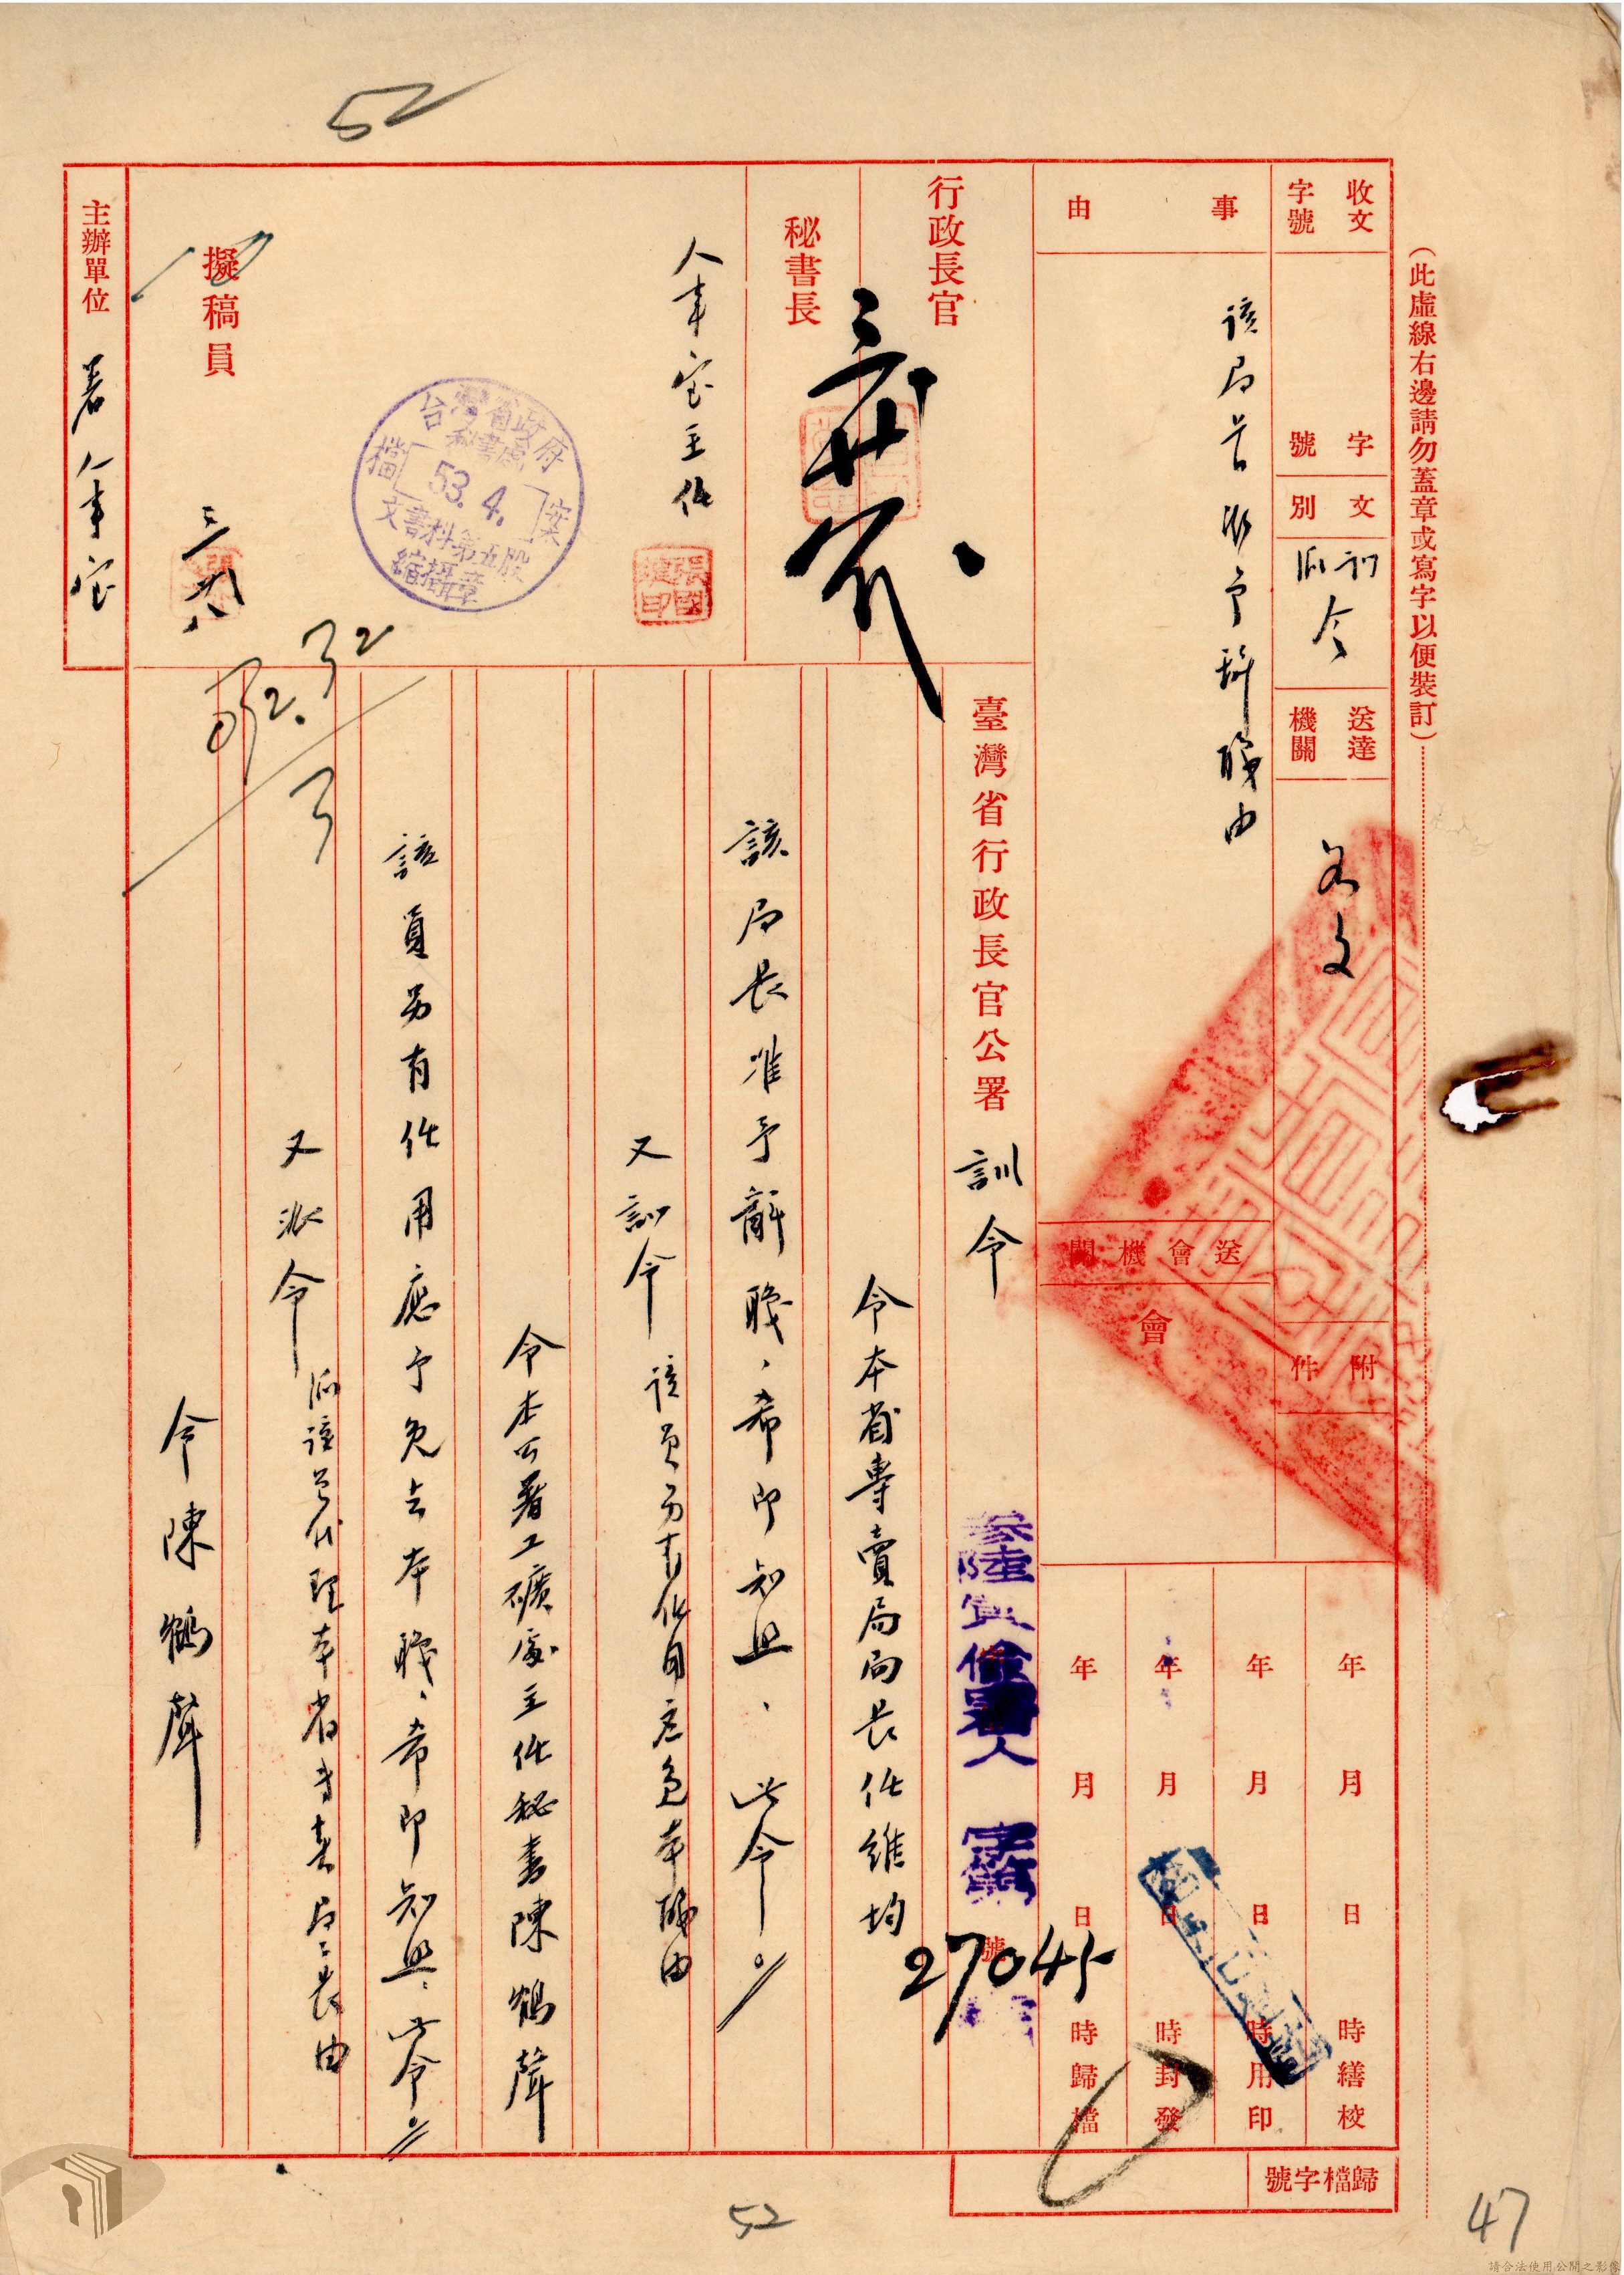 52
(此虛線右邊請勿蓋章或寫字以便裝訂)
收文字號
字號
文別
訓派令
送達機關
各文
附件
事由
該局長准予辭職由
送會機關
會
年月日時繕校
年月日時用印
年月日時封發
年月日時歸檔
行政長官
秘書長
人事室主任
張國鍵印
台灣省政府
秘書處
檔案
53.4.
文書科第五股
縮攝章
擬稿員
主辦單位
署人事室
臺灣省行政長官公署
訓令
參陸 署人 字第
號
27045
令本省專賣局局長任維均
該局長准予辭職、希即知照、此令。
又訓令
該員另有任用應免本職由
令本公署工礦處主任秘書陳鶴聲
該員另有任用應予免去本職、希即知照、此令。
又派令
派該員代理本省專賣局局長由
令陳鶴聲
歸檔字號
52
47
請合法使用公開之影像